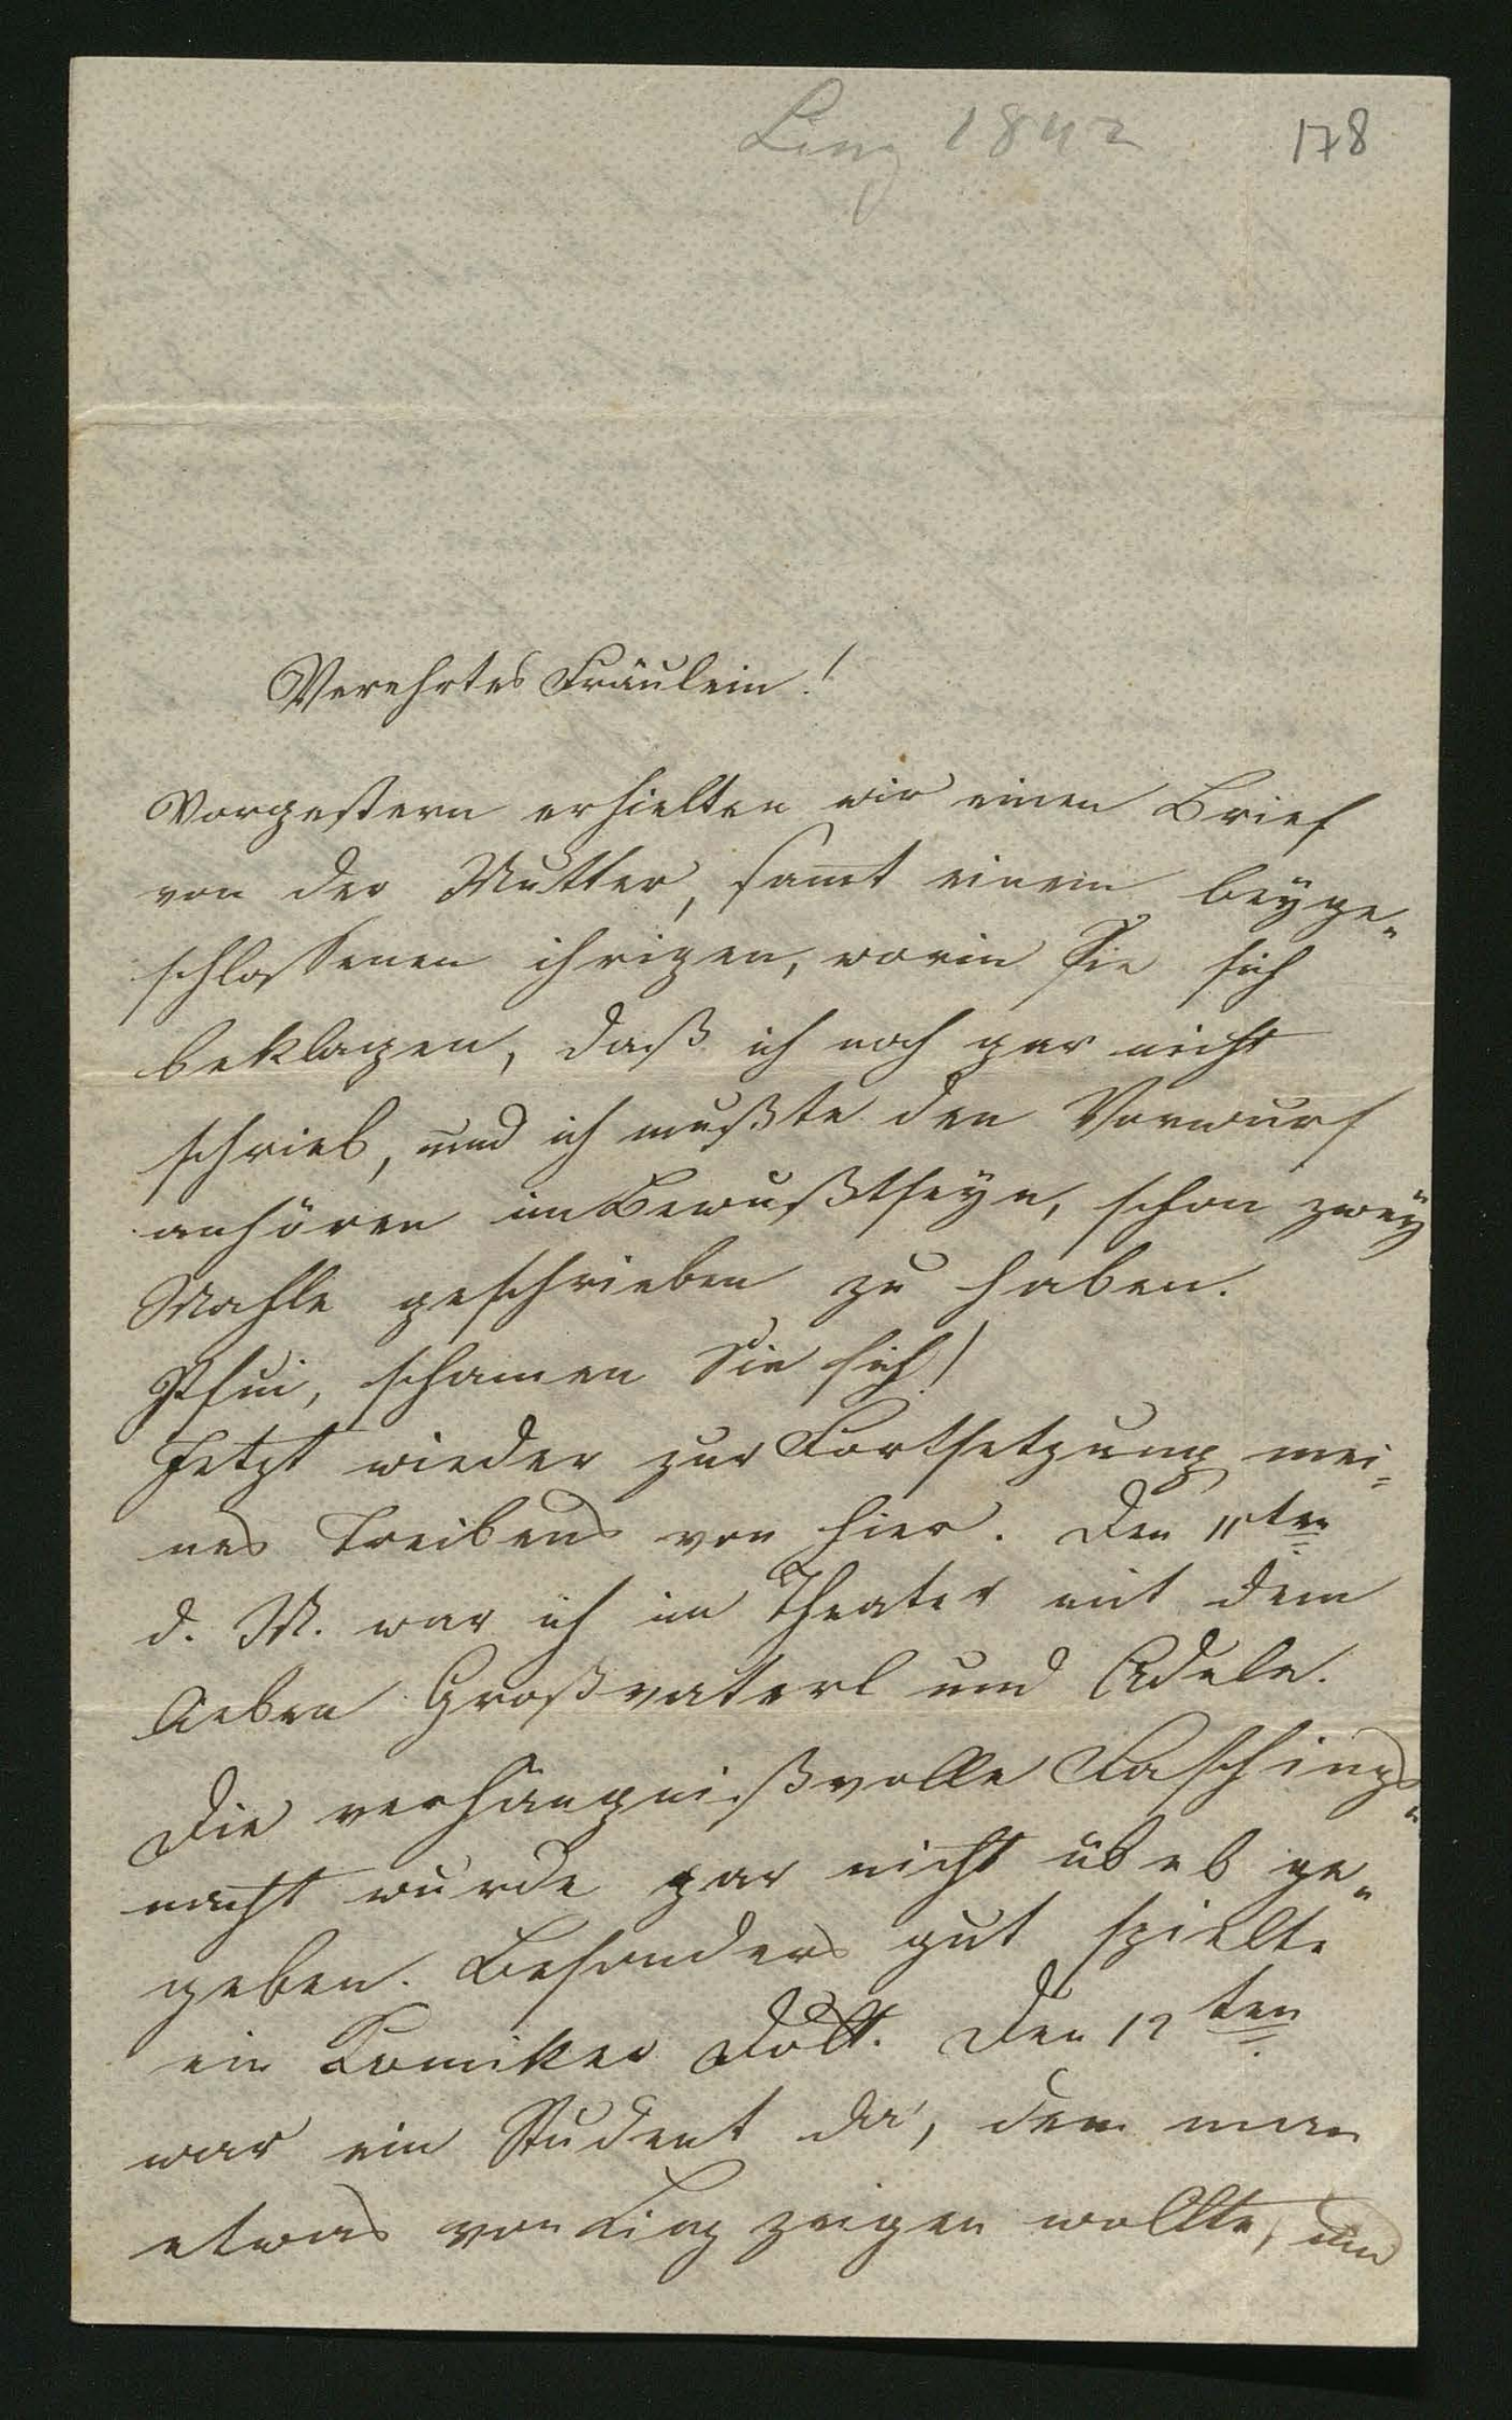 Linz 1842
178
Verehrtes Fräulein!
Vorgestern erhielten wir einen Brief
von der Mutter, samt einem beyge-
schlossenen ihrigen, worin Sie sich
beklagen, daß ich noch gar nicht
schrieb, und ich mußte den Vorwurf
anhören im Bewußtseyn, schon zwey
Mahle geschrieben zu haben.
Pfui, schämen Sie sich!
Jetzt wieder zur Fortsetzung mei-
nes Treibens von hier. Den 11ten
d. M. war ich im Theater mit dem
lieben Großvaterl und Adele.
Die verhängnißvolle Faschings-
nacht wurde gar nicht übel ge-
geben. Besonders gut spielte
ein Komiker Dolt. Den 12ten
war ein Student da, dem man
etwas von Linz zeigen wollte, und